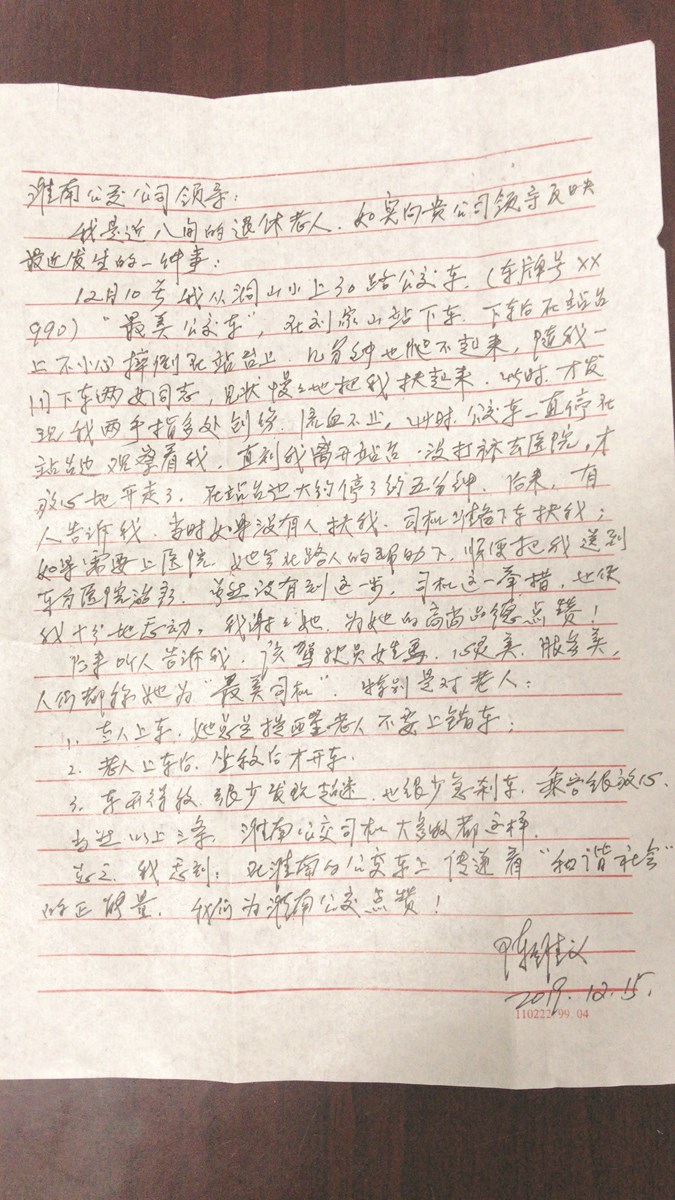 淮南公交公司领导：
我是近八旬的退休老人．如实向贵公司领导反映
最近发生的一件事：
12月10号我从洞山小上30路公交车．（车牌号XX
990）“最美公交车”，在刘家山站下车．下车后在站台
上不小心摔倒在站台上．几分钟也爬不起来，随我一
同下车两女同志，见状慢慢地把我扶起来．此时．才发
现我两手指多处创伤．流血不止，此时．公交车一直停在
站台边观察着我．直到我离开站台．没打算去医院，才
放心地开走了．在站台边大约停了约五分钟．后来，有
人告诉我．当时如果没有人扶我．司机准备下车扶我；
如果需要上医院．她会在路人的帮助下．顺便把我送到
东方医院治疗．虽然没有到这一步．司机这一举措，也使
我十分地感动。我谢谢她．为她的高尚品德点赞！
后来听人告诉我．该驾驶员姓马．心灵美．服务美，
人们都称她为“最美司机”．特别是对老人：
1．老人上车．她总是提醒老人不要上错车；
2．老人上车后．坐稳后才开车．
3．车开得稳．很少发现超速．也很少急刹车．乘客很放心．
当然以上三条．淮南公交司机大多数都这样．
总之．我感到：在淮南的公交车上传递着“和谐社会”
的正能量．我们为淮南公交点赞！
2019.12.15.
110222799 04